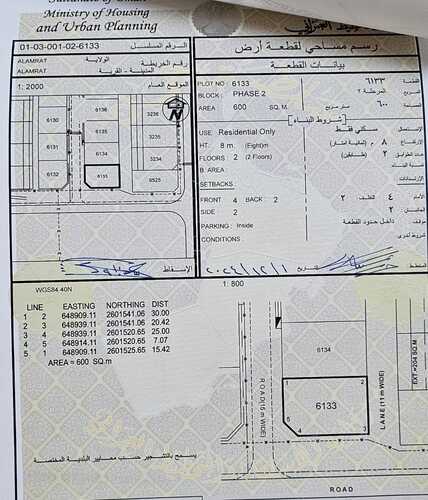 Sultanate of Oman
Ministry of Housing
and Urban Planning
رسم مساحي لقطعة أرض
01-03-001-02-6133
الرقم المسلسل
بيانات القطعة
ALAMRAT
الولاية
رقم الخريطة
ALAMRAT
المدينة - القرية
1: 2000
الموقع العام
6136
3236
6135
3235
6134
6
6133
6525
PLOT NO : 6133
٦١٣٣
القطعة
BLOCK : PHASE 2
المرحلة ٢
AREA 600 SQ. M.
متر مربع ٦٠٠
المساحة
شروط البناء
USE Residential Only
سكني فقط
الإستعمال
HT. 8 m. (Eight)m
٨ م (ثمانية أمتار)
الإرتفاع
FLOORS 2 (2 Floors)
٢ (طابقين)
عدد الطوابق
B. AREA
SETBACKS :
الإرتدادات
FRONT 4 BACK 2
الأمام ٤ الخلف ٢
SIDE 2
٢
PARKING : Inside
داخل حدود القطعة
CONDITIONS :
شروط أخرى
الإسقاط
٢٠٢٤/١٢/١
المخطط
WGS84 40N
1: 800
LINE EASTING NORTHING DIST
1 2 648909.11 2601541.06 30.00
2 3 648939.11 2601541.06 20.42
3 4 648939.11 2601520.65 25.00
4 5 648914.11 2601520.65 7.07
5 1 648909.11 2601525.65 15.42
AREA = 600 SQ.m
6134
EXT.=204 SQ.M
1 2
6133
5
4 3
ROAD(15 m WIDE)
LANE (11 m WIDE)
يسمح بالتشجير حسب معايير البلدية المختصة
ROAD